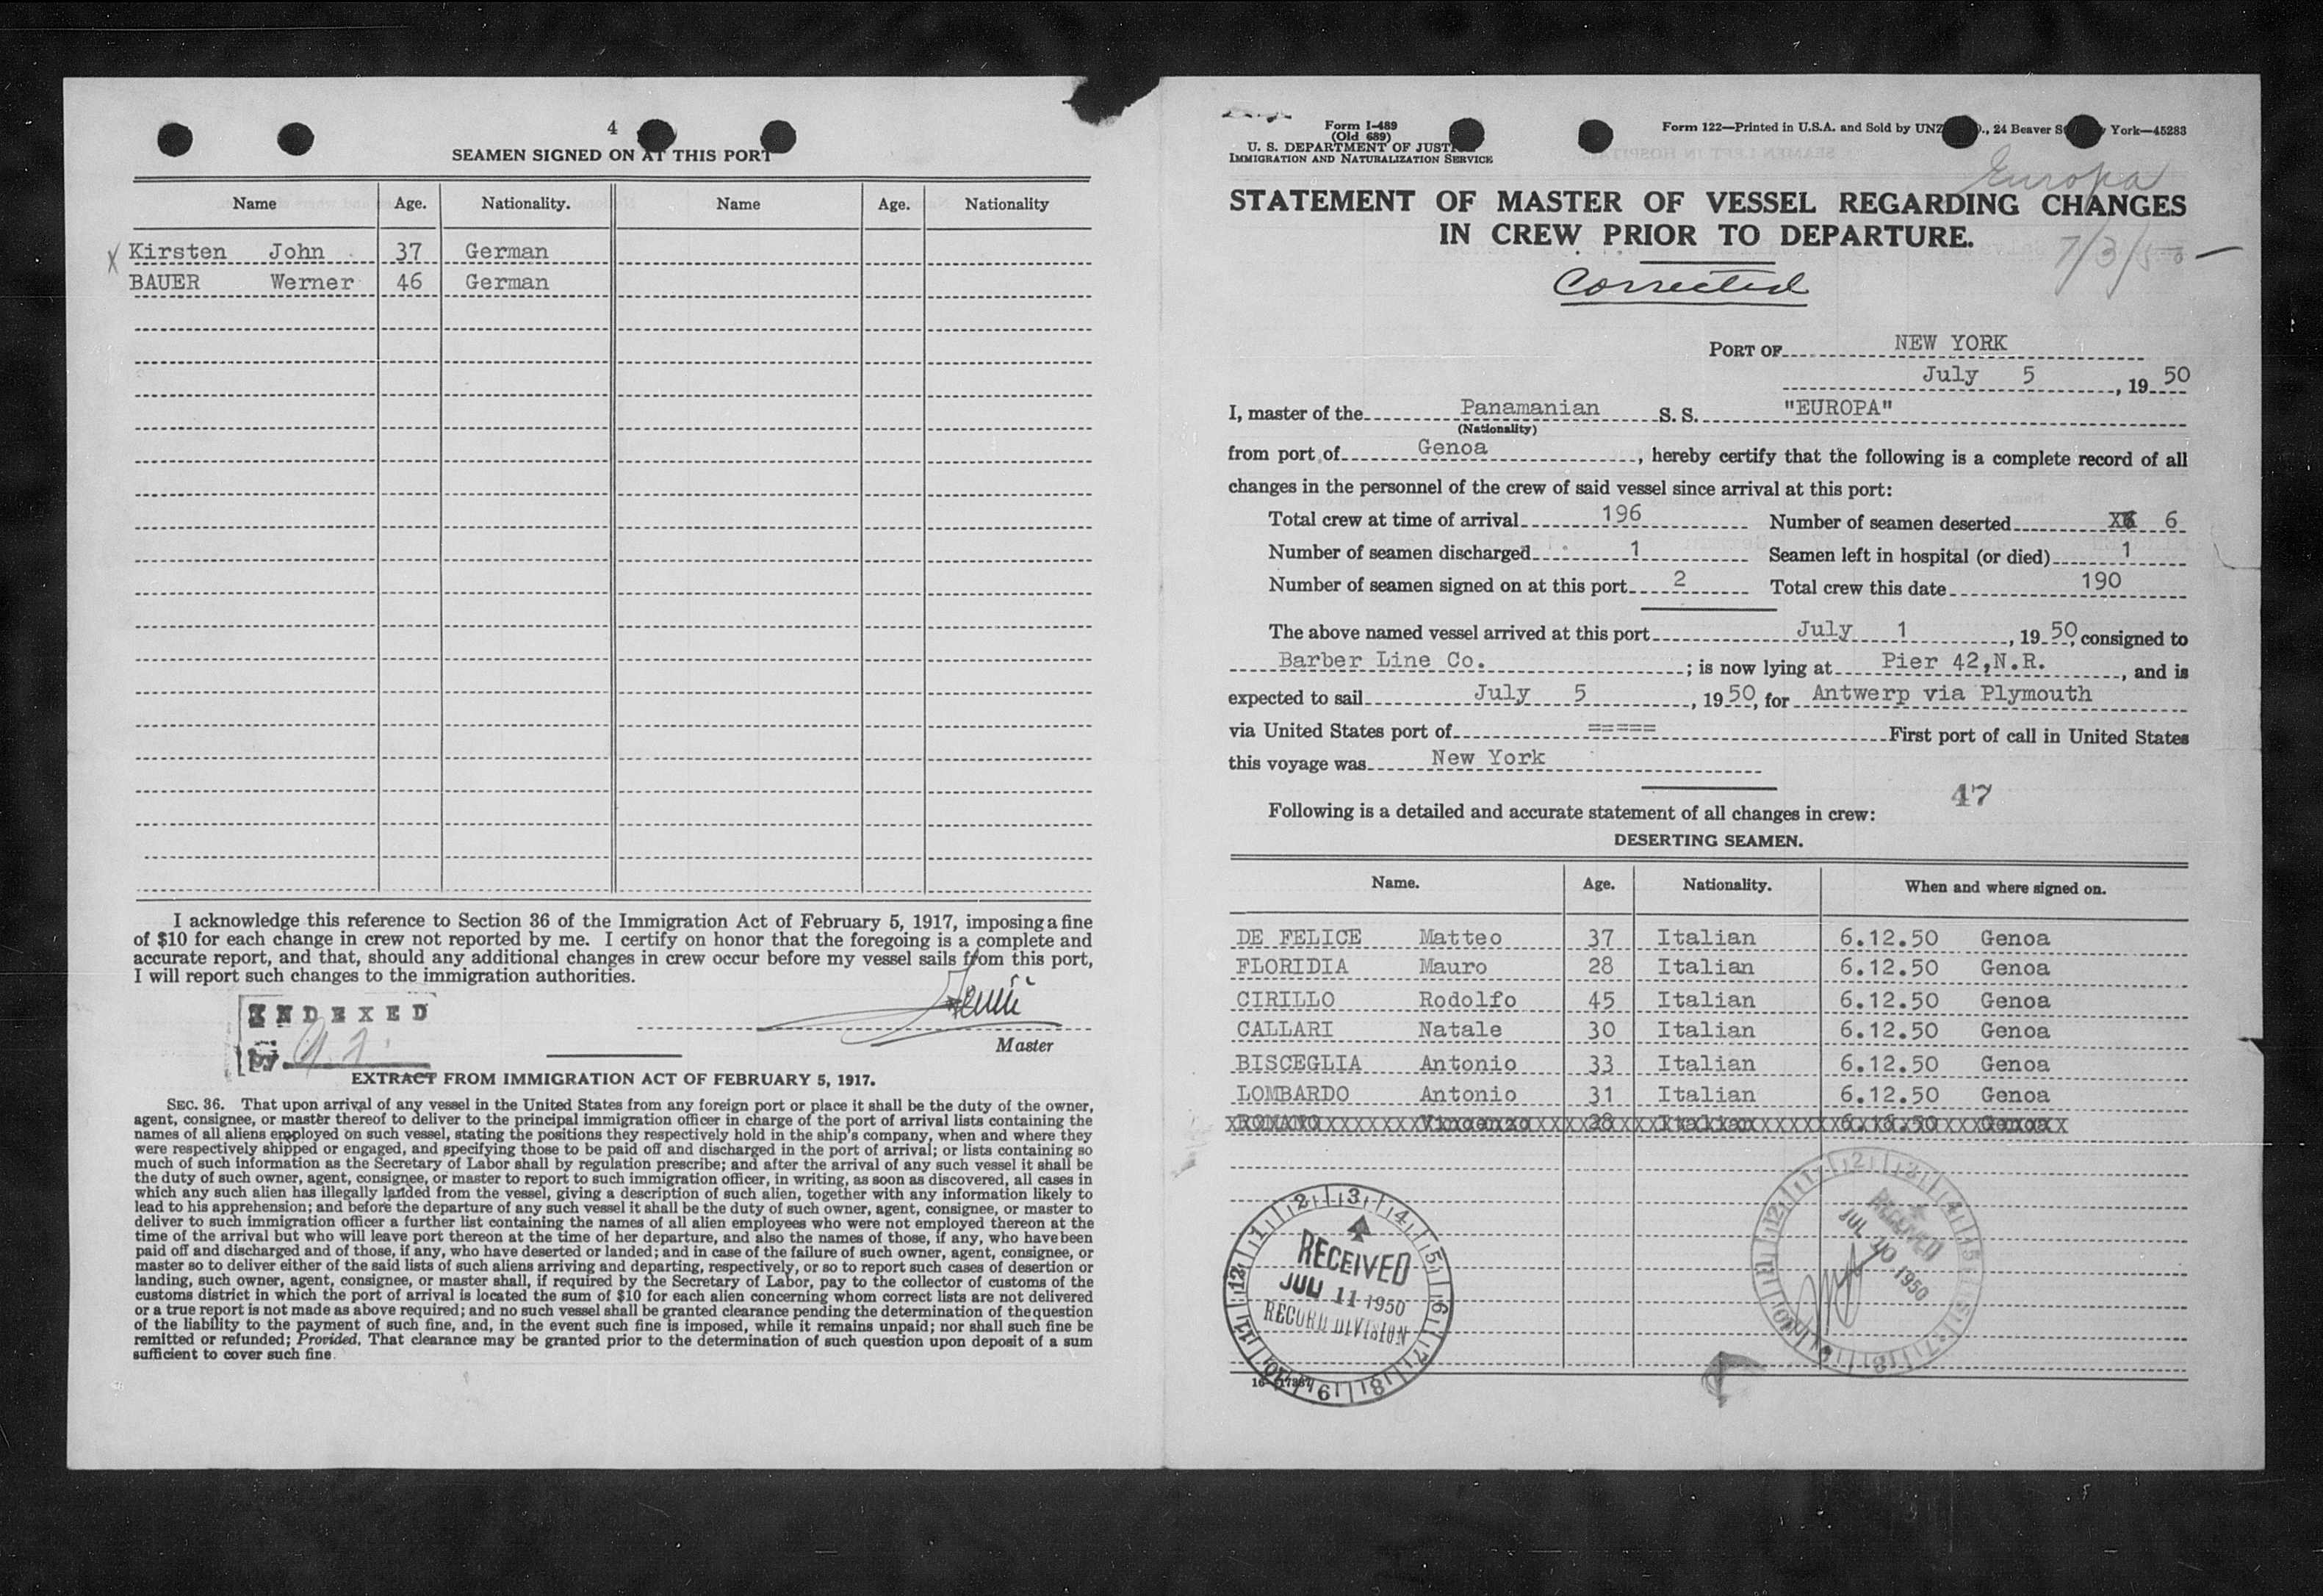 4
SEAMEN SIGNED ON AT THIS PORT
Name Age. Nationality. Name Age. Nationality
X Kirsten John 37 German
BAUER Werner 46 German
I acknowledge this reference to Section 36 of the Immigration Act of February 5, 1917, imposing a fine
of $10 for each change in crew not reported by me. I certify on honor that the foregoing is a complete and
accurate report, and that, should any additional changes in crew occur before my vessel sails from this port,
I will report such changes to the immigration authorities.
INDEXED
by
Master
EXTRACT FROM IMMIGRATION ACT OF FEBRUARY 5, 1917.
SEC. 36. That upon arrival of any vessel in the United States from any foreign port or place it shall be the duty of the owner,
agent, consignee, or master thereof to deliver to the principal immigration officer in charge of the port of arrival lists containing the
names of all aliens employed on such vessel, stating the positions they respectively hold in the ship's company, when and where they
were respectively shipped or engaged, and specifying those to be paid off and discharged in the port of arrival; or lists containing so
much of such information as the Secretary of Labor shall by regulation prescribe; and after the arrival of any such vessel it shall be
the duty of such owner, agent, consignee, or master to report to such immigration officer, in writing, as soon as discovered, all cases in
which any such alien has illegally landed from the vessel, giving a description of such alien, together with any information likely to
lead to his apprehension; and before the departure of any such vessel it shall be the duty of such owner, agent, consignee, or master to
deliver to such immigration officer a further list containing the names of all alien employees who were not employed thereon at the
time of the arrival but who will leave port thereon at the time of her departure, and also the names of those, if any, who have been
paid off and discharged and of those, if any, who have deserted or landed; and in case of the failure of such owner, agent, consignee, or
master so to deliver either of the said lists of such aliens arriving and departing, respectively, or so to report such cases of desertion or
landing, such owner, agent, consignee, or master shall, if required by the Secretary of Labor, pay to the collector of customs of the
customs district in which the port of arrival is located the sum of $10 for each alien concerning whom correct lists are not delivered
or a true report is not made as above required; and no such vessel shall be granted clearance pending the determination of the question
of the liability to the payment of such fine, and, in the event such fine is imposed, while it remains unpaid; nor shall such fine be
remitted or refunded; Provided, That clearance may be granted prior to the determination of such question upon deposit of a sum
sufficient to cover such fine.
Form I-489
(Old 689)
U. S. DEPARTMENT OF JUSTI
IMMIGRATION AND NATURALIZATION SERVICE
Form 122—Printed in U.S.A. and Sold by UNZ ., 24 Beaver S York—45283
Europa
STATEMENT OF MASTER OF VESSEL REGARDING CHANGES
IN CREW PRIOR TO DEPARTURE.
7/3/50
Corrected
PORT OF NEW YORK
July 5, 1950
I, master of the Panamanian S. S. "EUROPA"
(Nationality)
from port of Genoa, hereby certify that the following is a complete record of all
changes in the personnel of the crew of said vessel since arrival at this port:
Total crew at time of arrival 196 Number of seamen deserted 6
Number of seamen discharged 1 Seamen left in hospital (or died) 1
Number of seamen signed on at this port 2 Total crew this date 190
The above named vessel arrived at this port July 1, 1950, consigned to
Barber Line Co.; is now lying at Pier 42,N.R., and is
expected to sail July 5, 1950, for Antwerp via Plymouth
via United States port of ===== First port of call in United States
this voyage was New York
47
Following is a detailed and accurate statement of all changes in crew:
DESERTING SEAMEN.
Name. Age. Nationality. When and where signed on.
DE FELICE Matteo 37 Italian 6.12.50 Genoa
FLORIDIA Mauro 28 Italian 6.12.50 Genoa
CIRILLO Rodolfo 45 Italian 6.12.50 Genoa
CALLARI Natale 30 Italian 6.12.50 Genoa
BISCEGLIA Antonio 33 Italian 6.12.50 Genoa
LOMBARDO Antonio 31 Italian 6.12.50 Genoa
ROMANO Vincenzo 28 Italian 6.16.50 Genoa
RECEIVED
JUL 11 1950
RECORD DIVISION
RECEIVED
JUL 10 1950